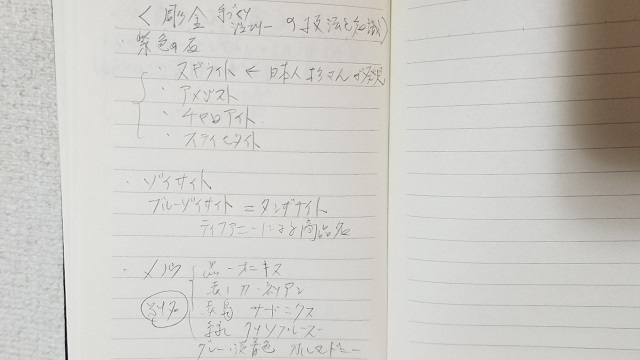 <彫金 手づくりジュエリーの技法と知識>
・紫色の石
・スギライト ← 日本人 杉さんが発見
・アメジスト
・チャロアイト
・スティヒタイト
・ゾイサイト
ブルーゾイサイト = タンザナイト
ティファニーによる商品名
・メノウ 黒-オニキス
赤-カーネリアン
赤縞 サードニクス
クリソプレーズ
グレー・淡青色 カルセドニー